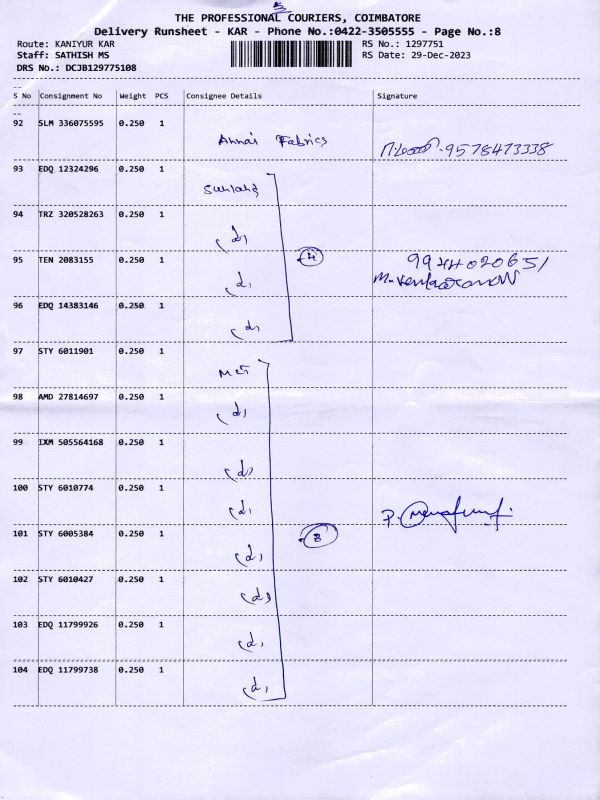 5
THE PROFESSIONAL COURIERS, COIMBATORE
Delivery Runsheet - KAR - Phone No.:0422-3505555 - Page No.:8
Route: KANIYUR KAR RS No.: 1297751
Staff: SATHISH MS RS Date: 29-Dec-2023
DRS No.: DCJB129775108
S No Consignment No Weight PCS Consignee Details Signature
92 SLM 336075595 0.250 1
Annai Fabrics 9578473338
93 EDQ 12324296 0.250 1
94 TRZ 320528263 0.250 1
(d)
4
95 TEN 2083155 0.250 1
9944020651
(d)
96 EDQ 14383146 0.250 1
(d)
97 STY 6011901 0.250 1
98 AMD 27814697 0.250 1
(d)
99 IXM 505564168 0.250 1
(d)
100 STY 6010774 0.250 1
(d)
101 STY 6005384 0.250 1
8
(d)
102 STY 6010427 0.250 1
(d)
103 EDQ 11799926 0.250 1
(d)
104 EDQ 11799738 0.250 1
(d)